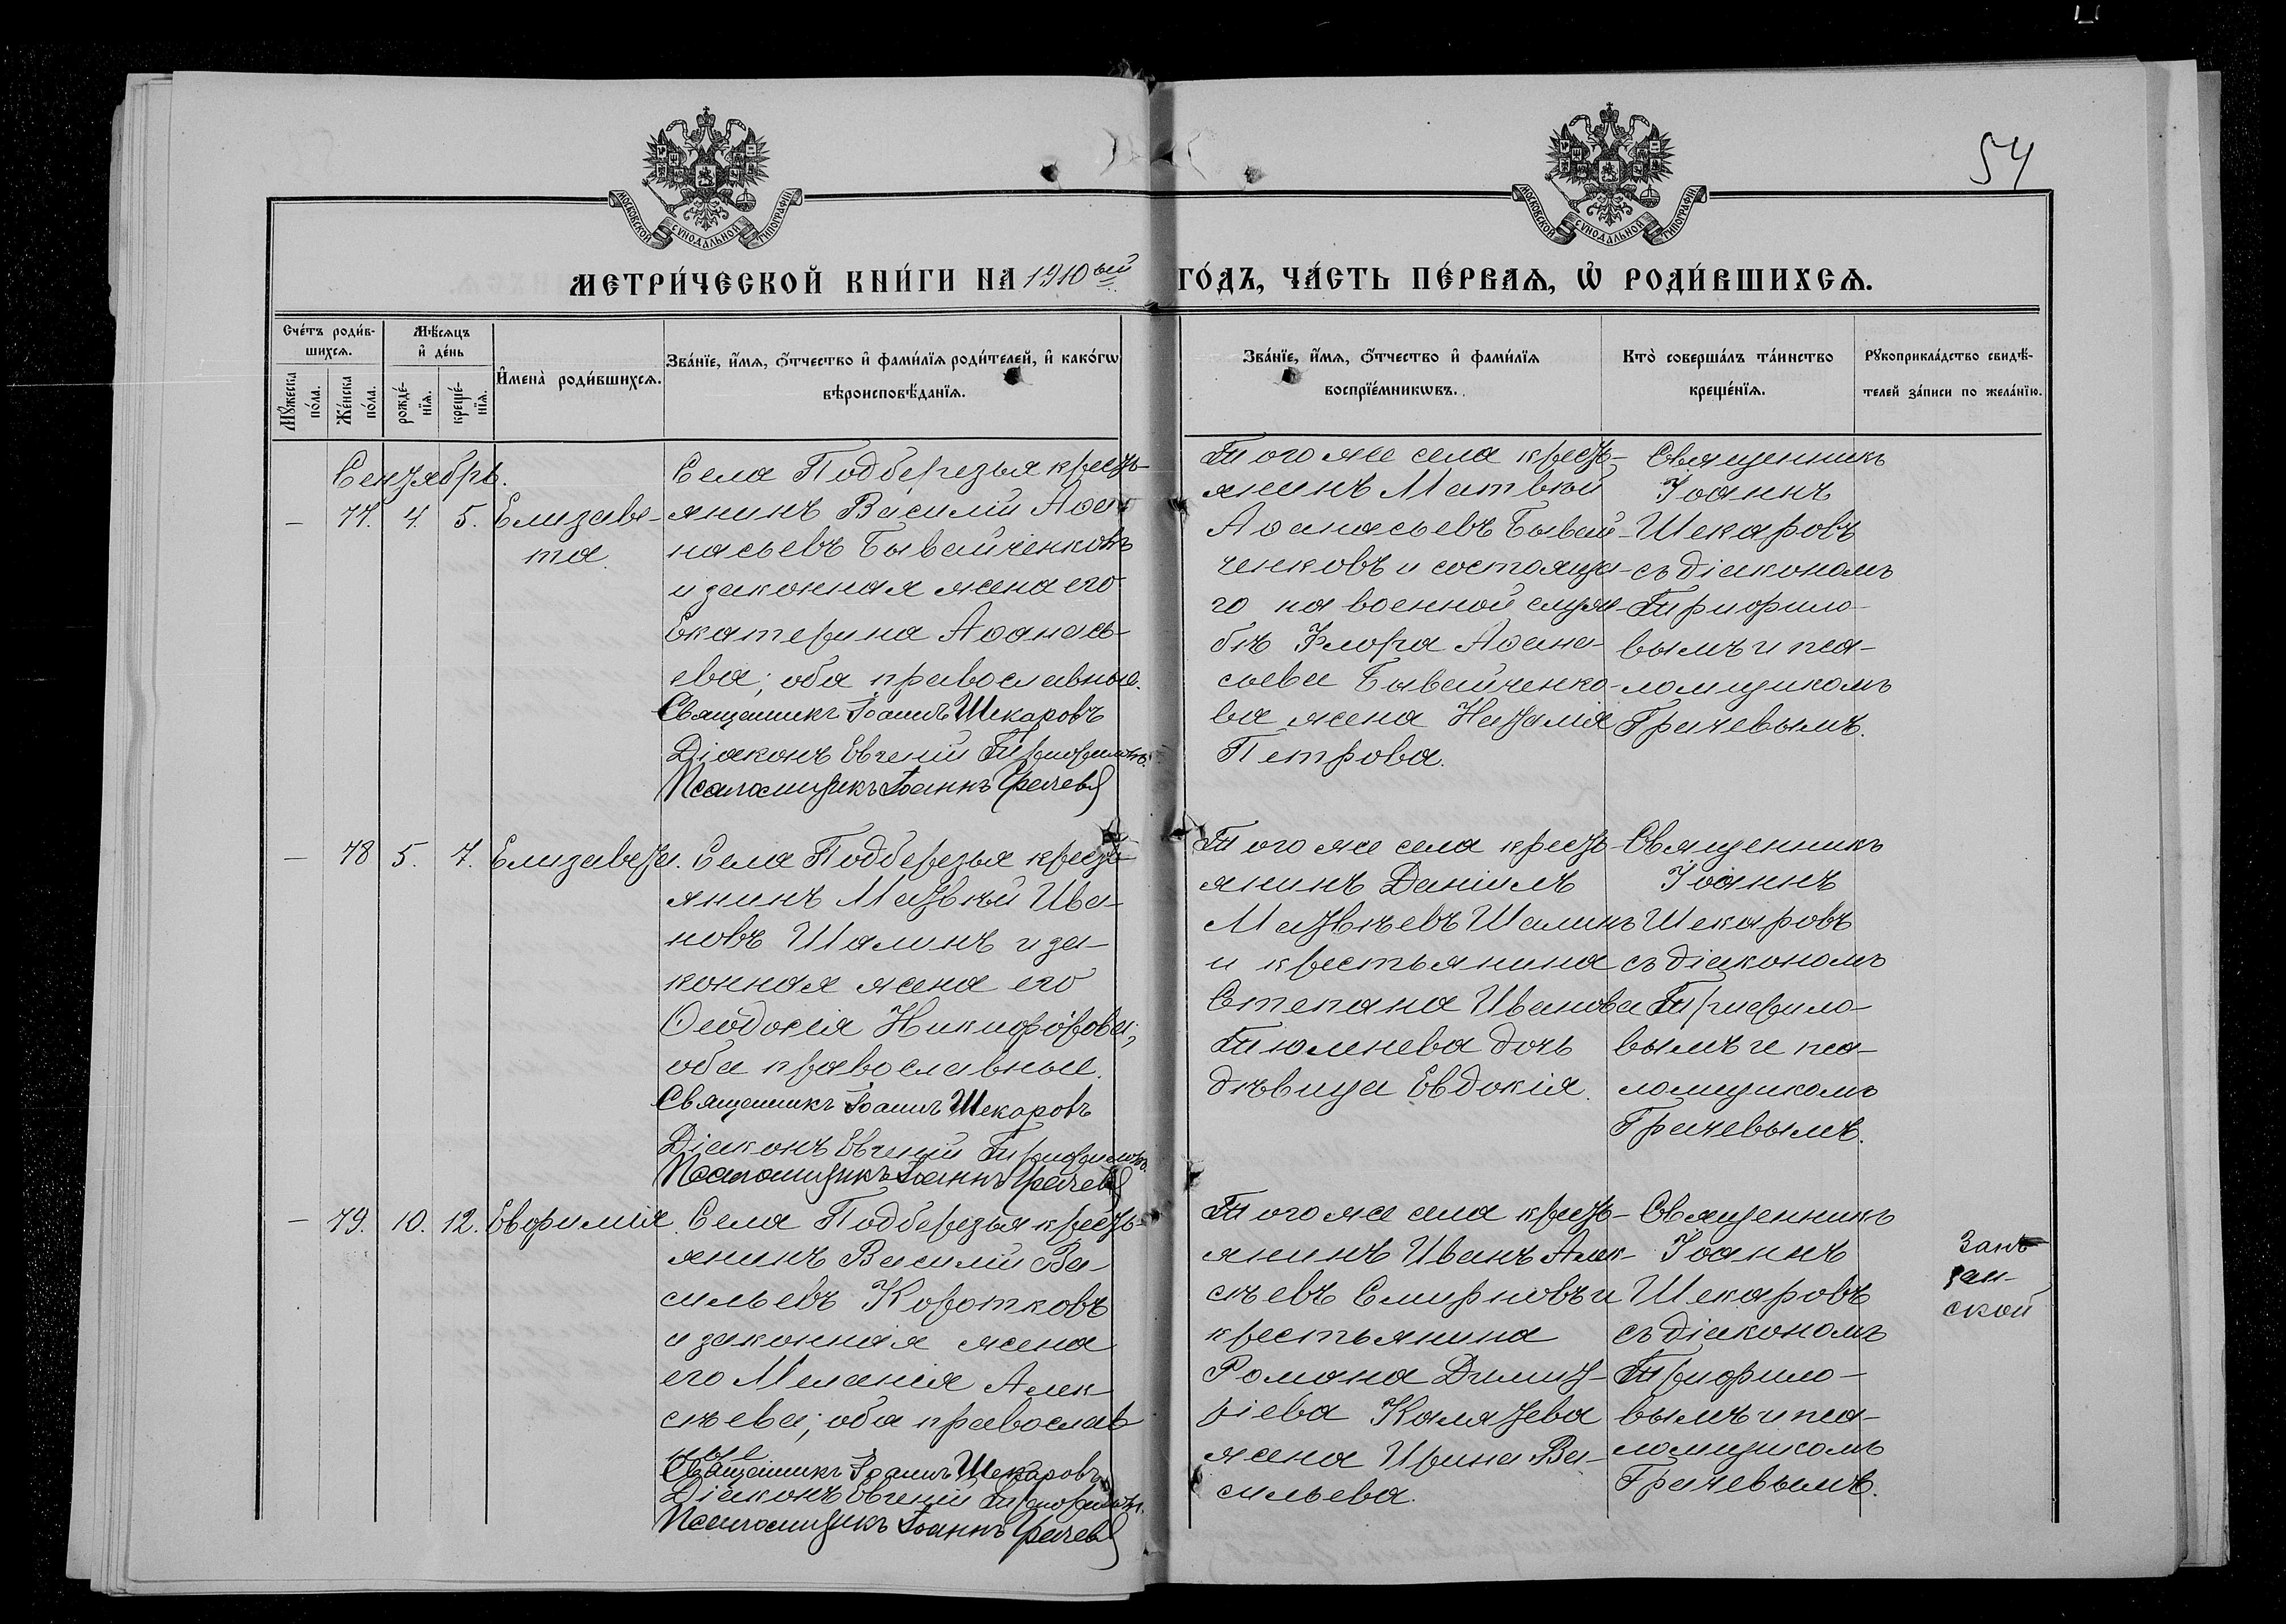 54
МОСКОВСКОЙ СѴНОДАЛЬНОЙ ТИПОГРАФІИ
МОСКОВСКОЙ СѴНОДАЛЬНОЙ ТИПОГРАФІИ
МЕТРИ́ЧЕСКОЙ КНИ́ГИ НА 1910ый ГО́ДЪ, ЧА́СТЬ ПЕ́РВАѦ, Ѡ҆ РОДИ́ВШИХСѦ.
Сче́тъ роди́в-
шихсѧ.
Мѣ́сѧцъ
и҆ де́нь
Мꙋ́жеска
по́ла.
Же́нска
по́ла.
рожде́-
нїѧ.
креще́-
нїѧ.
И҆мена̀ роди́вшихсѧ.
Зва́нїе, и҆́мѧ, ѻ҆́тчество и҆ фами́лїѧ роди́телей, и҆ како́гѡ
вѣроисповѣ́данїѧ.
Зва́нїе, и҆́мѧ, ѻ҆́тчество и҆ фами́лїѧ
воспрїе́мникѡвъ.
Кто̀ соверша́лъ та́инство
креще́нїѧ.
Рꙋкоприкла́дство свидѣ́-
телей за́писи по жела́нїю.
Сентябрь.
— 77. 4. 5. Елизаве-
та.
Села Подберезья кресть-
янинъ Василій Аѳа-
насьевъ Бывайченковъ
и законная жена его
Екатерина Аѳанась-
ева; оба православные.
Священникъ Іоаннъ Шекаровъ
Діаконъ Евгеній Трифиловъ.
Псаломщикъ Іоаннъ Грачевъ
Того же села кресть-
янинъ Матвѣй
Аѳанасьевъ Бывай-
ченковъ и состояща-
го на военной служ-
бѣ Флора Аѳана-
сьева Бывайченко-
ва жена Наталія
Петрова.
Священникъ
Іоаннъ
Шекаровъ
съ діакономъ
Трифило-
вымъ и пса-
ломщикомъ
Грачевымъ.
— 78 5. 7. Елизавета.
Села Подберезья кресть-
янинъ Матвѣй Ива-
новъ Шалинъ и за-
конная жена его
Ѳеодосія Никифорова;
оба православные.
Священникъ Іоаннъ Шекаровъ
Діаконъ Евгеній Трифиловъ.
Псаломщикъ Іоаннъ Грачевъ
Того же села кресть-
янинъ Даніилъ
Матвѣевъ Шалинъ
и крестьянина
Степана Иванова
Тюленева дочь
дѣвица Евдокія.
Священникъ
Іоаннъ
Шекаровъ
съ діакономъ
Трифило-
вымъ и пса-
ломщикомъ
Грачевымъ.
— 79. 10. 12. Евфимія.
Села Подберезья кресть-
янинъ Василій Ва-
сильевъ Коротковъ
и законная жена
его Меланія Алек-
сѣева; оба православ
ные
Священникъ Іоаннъ Шекаровъ
Діаконъ Евгеній Трифиловъ.
Псаломщикъ Іоаннъ Грачевъ
Того же села кресть-
янинъ Иванъ Алек-
сѣевъ Смирновъ и
крестьянина
Романа Димит-
ріева Калятева
жена Ирина Ва-
сильева.
Священникъ
Іоаннъ
Шекаровъ
съ діакономъ
Трифило-
вымъ и пса-
ломщикомъ
Грачевымъ.
ской